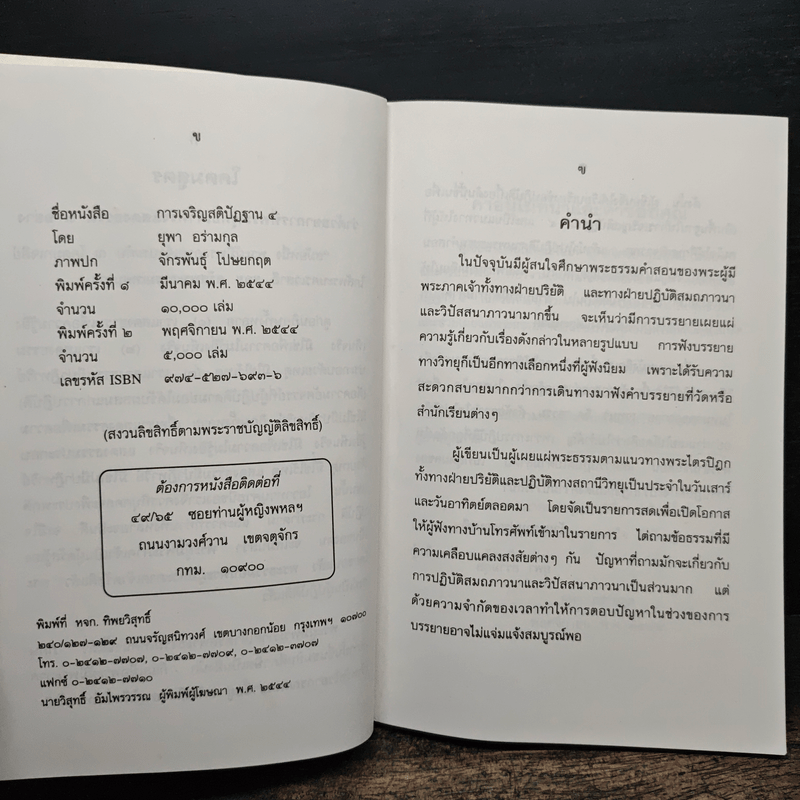 ข
ชื่อหนังสือ การเจริญสติปัฏฐาน ๔
โดย ยุพา อร่ามกุล
ภาพปก จักรพันธุ์ โปษยกฤต
พิมพ์ครั้งที่ ๑ มีนาคม พ.ศ. ๒๕๔๔
จำนวน ๑๐,๐๐๐ เล่ม
พิมพ์ครั้งที่ ๒ พฤศจิกายน พ.ศ. ๒๕๔๔
จำนวน ๕,๐๐๐ เล่ม
เลขรหัส ISBN ๙๗๔-๕๒๗-๖๙๓-๖
(สงวนลิขสิทธิ์ตามพระราชบัญญัติลิขสิทธิ์)
ต้องการหนังสือติดต่อที่
๔๙/๖๕ ซอยท่านผู้หญิงพหลฯ
ถนนงามวงศ์วาน เขตจตุจักร
กทม. ๑๐๙๐๐
พิมพ์ที่ หจก. ทิพยวิสุทธิ์
๒๔๐/๑๒๗-๑๒๙ ถนนจรัญสนิทวงศ์ เขตบางกอกน้อย กรุงเทพฯ ๑๐๗๐๐
โทร. ๐-๒๔๑๒-๗๗๐๗, ๐-๒๔๑๒-๗๗๐๙, ๐-๒๔๑๒-๓๗๐๗
แฟกซ์ ๐-๒๔๑๒-๗๗๑๐
นายวิสุทธิ์ อัมไพรวรรณ ผู้พิมพ์ผู้โฆษณา พ.ศ. ๒๕๔๔
ฃ
คำนำ
ในปัจจุบันมีผู้สนใจศึกษาพระธรรมคำสอนของพระผู้มี
พระภาคเจ้าทั้งทางฝ่ายปริยัติ และทางฝ่ายปฏิบัติสมถภาวนา
และวิปัสสนาภาวนามากขึ้น จะเห็นว่ามีการบรรยายเผยแผ่
ความรู้เกี่ยวกับเรื่องดังกล่าวในหลายรูปแบบ การฟังบรรยาย
ทางวิทยุก็เป็นอีกทางเลือกหนึ่งที่ผู้ฟังนิยม เพราะได้รับความ
สะดวกสบายมากกว่าการเดินทางมาฟังคำบรรยายที่วัดหรือ
สำนักเรียนต่างๆ
ผู้เขียนเป็นผู้เผยแผ่พระธรรมตามแนวทางพระไตรปิฎก
ทั้งทางฝ่ายปริยัติและปฏิบัติทางสถานีวิทยุเป็นประจำในวันเสาร์
และวันอาทิตย์ตลอดมา โดยจัดเป็นรายการสดเพื่อเปิดโอกาส
ให้ผู้ฟังทางบ้านโทรศัพท์เข้ามาในรายการ ไต่ถามข้อธรรมที่มี
ความเคลือบแคลงสงสัยต่างๆ กัน ปัญหาที่ถามมักจะเกี่ยวกับ
การปฏิบัติสมถภาวนาและวิปัสสนาภาวนาเป็นส่วนมาก แต่
ด้วยความจำกัดของเวลาทำให้การตอบปัญหาในช่วงของการ
บรรยายอาจไม่แจ่มแจ้งสมบูรณ์พอ